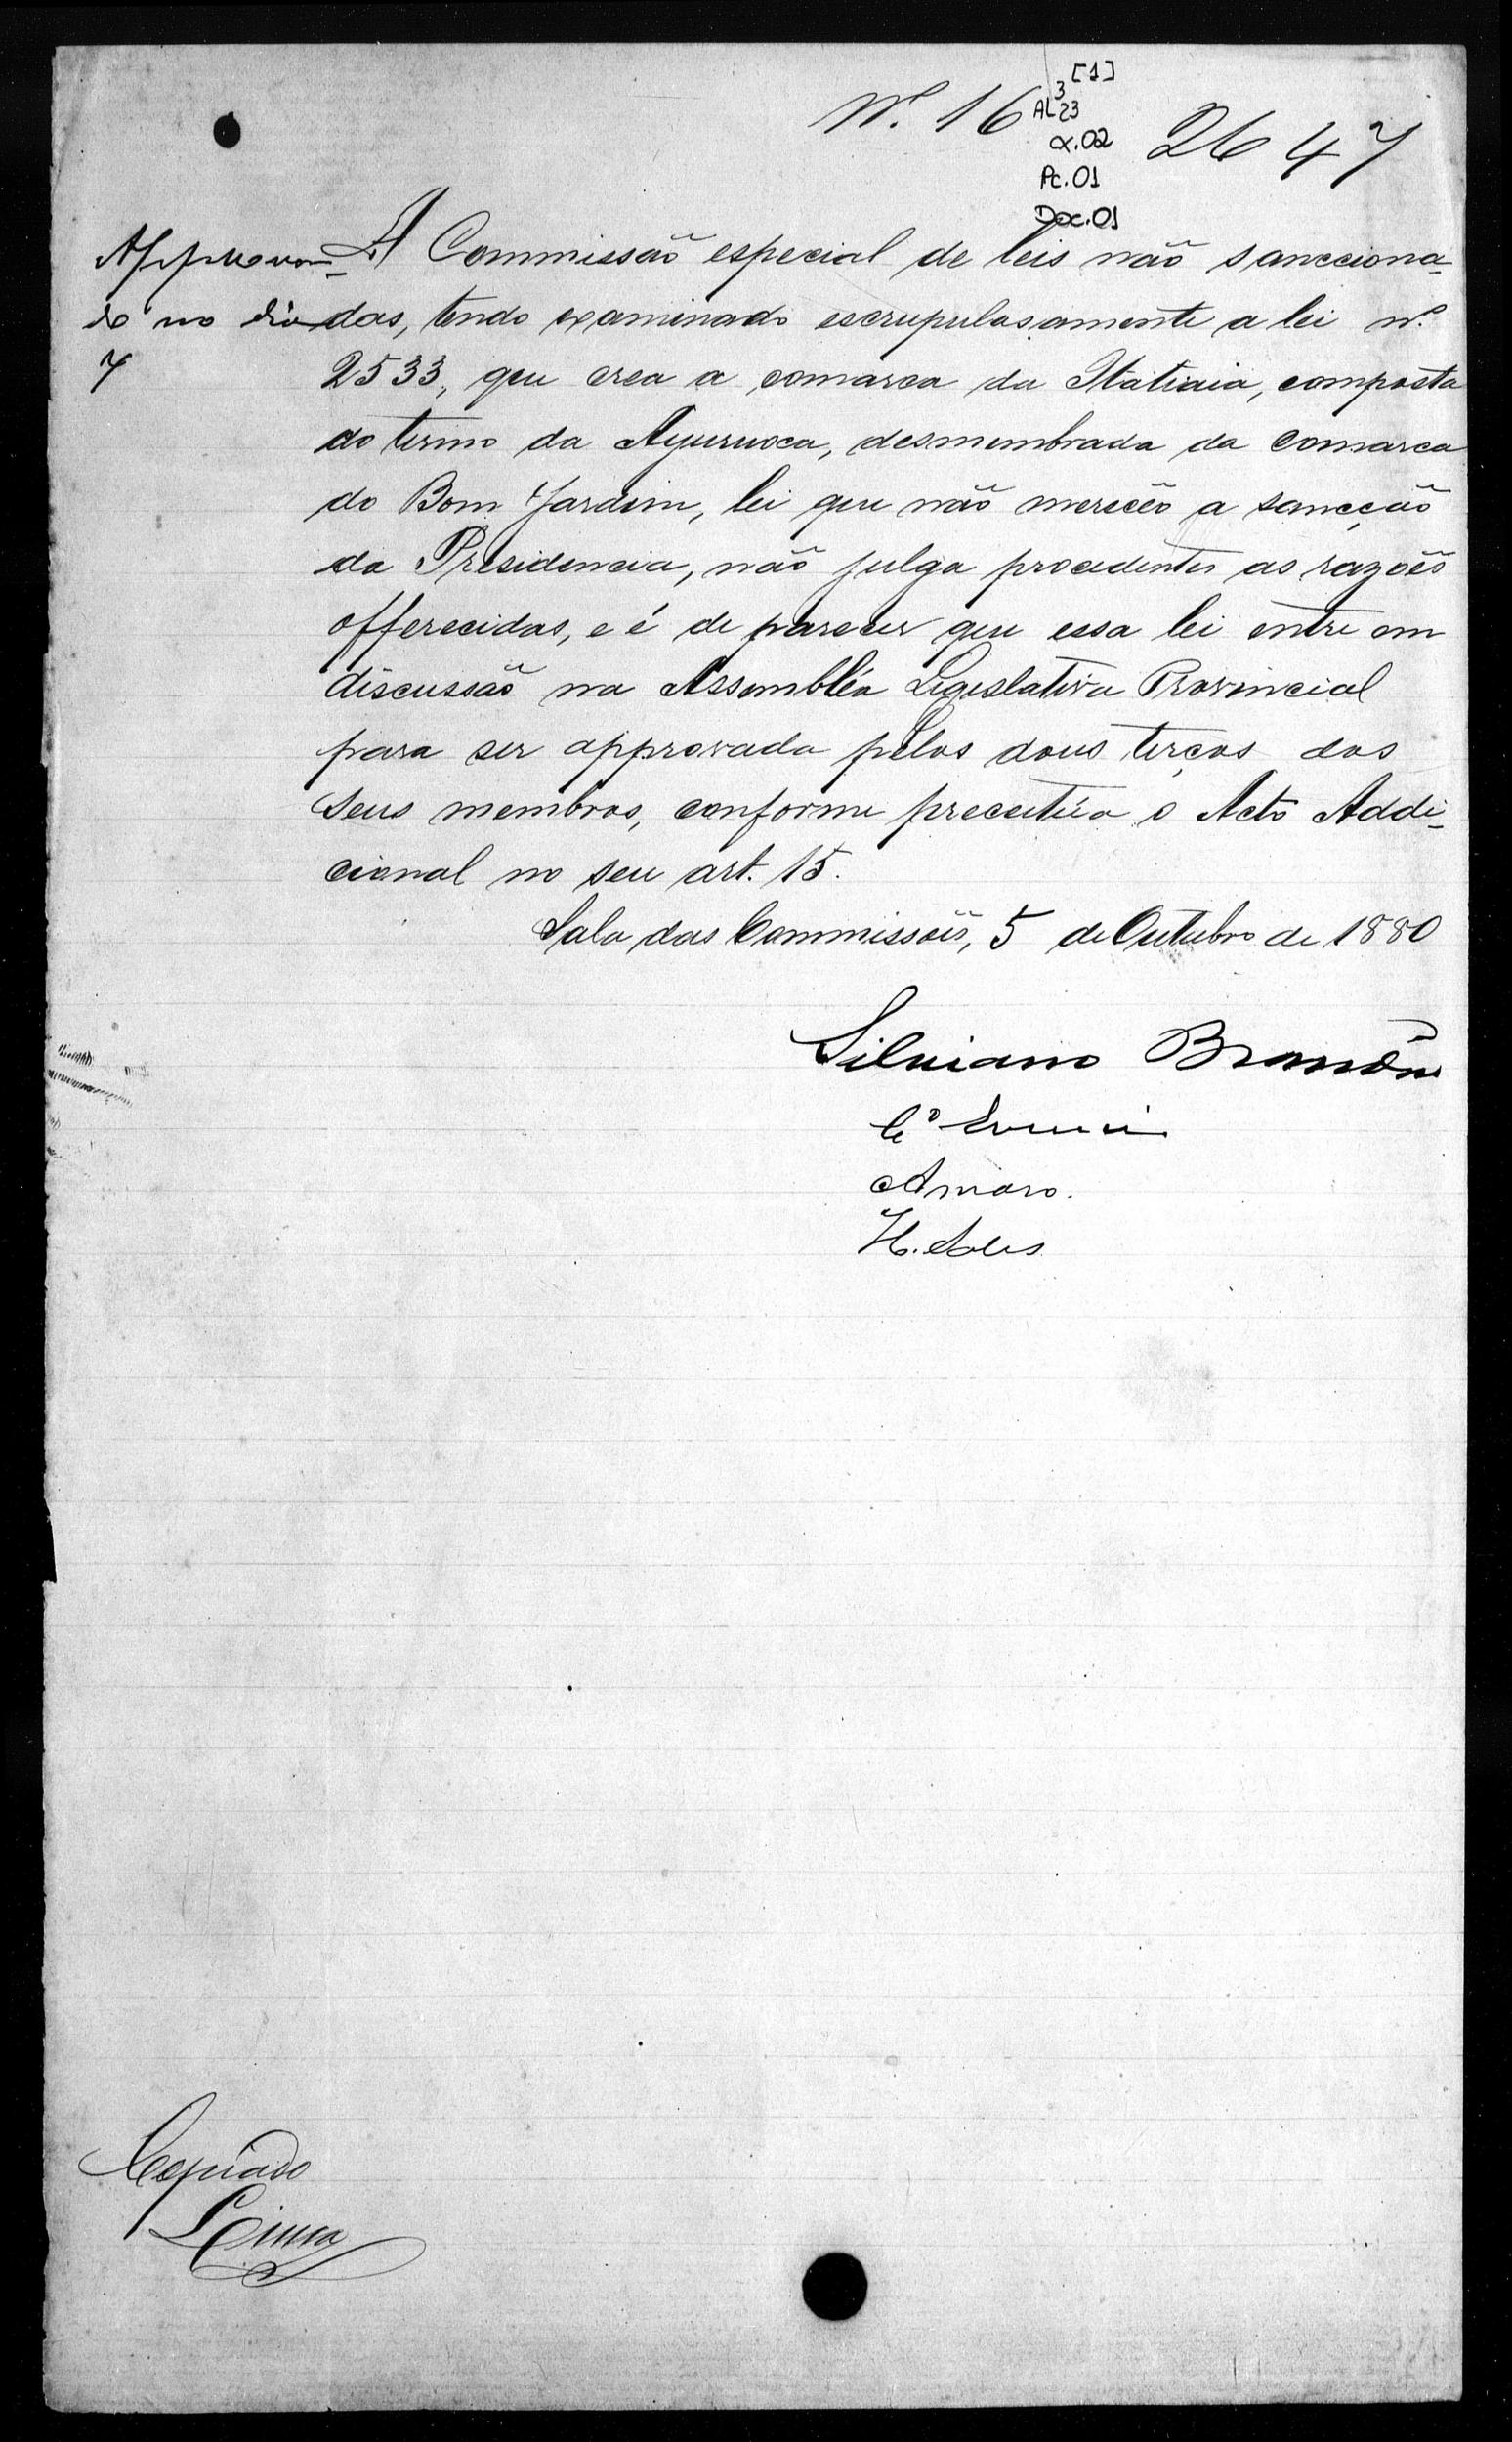 [1]
N.º 16
AL 3 23
cx.02
Pc.01
Doc.01
2647
Approva-
do no dia
7
A Commissão especial de leis não sancciona-
das, tendo examinado escrupulosamente a lei n.º
2533, que crea a comarca da Itatiaia, composta
do termo da Ayuruoca, desmembrada da comarca
do Bom Jardim, lei que não mereceo a sancção
da Presidencia, não julga procedentes as razões
offerecidas, e é de parecer que essa lei entre em
discussão na Assembléa Legislativa Provincial
para ser approvada pelos dous terços dos
seus membros, conforme preceitúa o Acto Addi-
cional no seu art. 15.
Sala das Commissões, 5 de Outubro de 1880
Silviano Brandão
Amaro.
H. Salles
Copiado
Lima